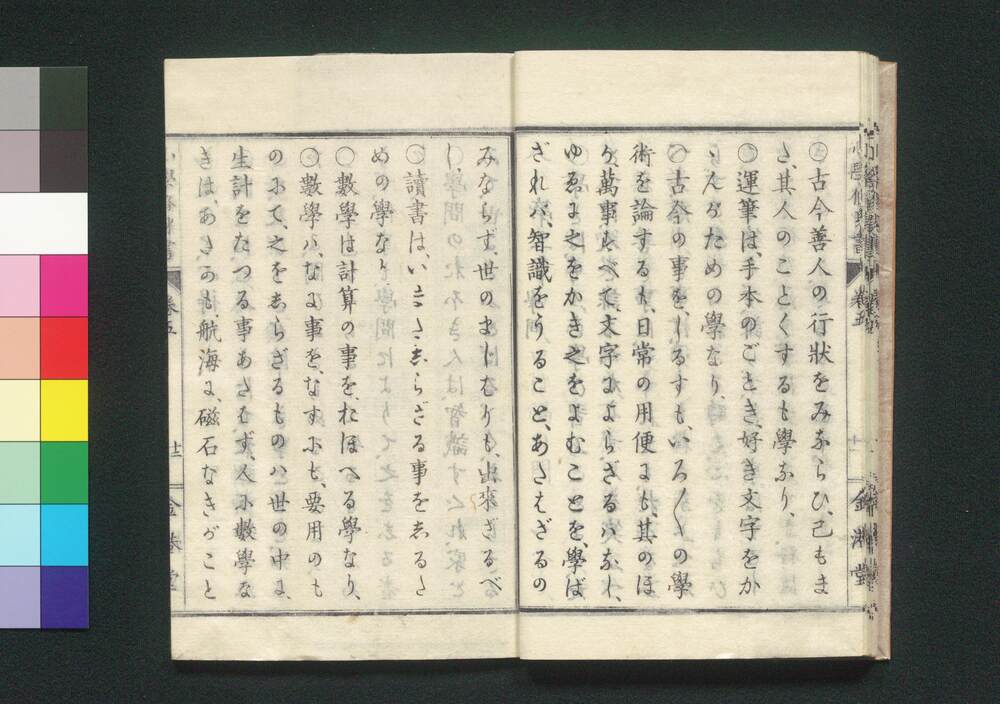 〇古今善人の行狀をみならひ、己もま
た、其人のことくするも學なり、
〇運筆は、手本のごとき、好き文字をか
ゝんがための學なり、
〇古今の事を、しるすも、いろ〳〵の學
術を論するも、日常の用便にも、其のほ
か、萬事すべて、文字によらざるハなし、
ゆゑに之をかき之をよむことを、學ば
ざれバ、智識をうること、あたはざるの
みならず、世のまじはりも、出來ざるべ
し、
〇讀書は、いまだしらざる事をしるた
めの學なり、
〇數學は計算の事を、おぼへる學なり、
〇數學ハ、なに事を、なすにも、要用のも
のにて、之をしらざるものハ世の中に、
生計をたつる事あたはず、人に數學な
きは、あたかも、航海に、磁石なきがこと
卷五